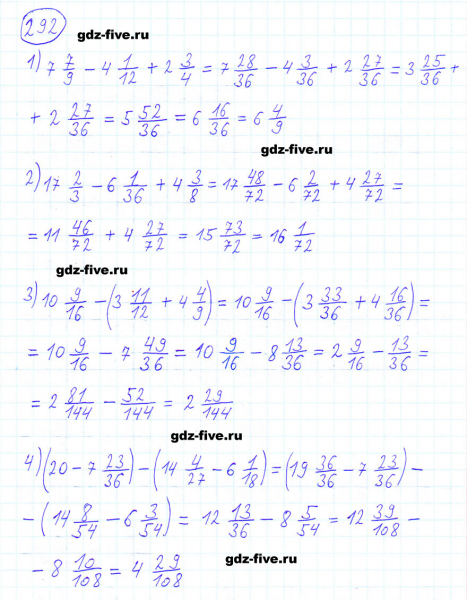 292
gdz-five.ru
1) 7 7/9 − 4 1/12 + 2 3/4 = 7 28/36 − 4 3/36 + 2 27/36 = 3 25/36 +
+ 2 27/36 = 5 52/36 = 6 16/36 = 6 4/9
gdz-five.ru
2) 17 2/3 − 6 1/36 + 4 3/8 = 17 48/72 − 6 2/72 + 4 27/72 =
= 11 46/72 + 4 27/72 = 15 73/72 = 16 1/72
gdz-five.ru
3) 10 9/16 − (3 11/12 + 4 4/9) = 10 9/16 − (3 33/36 + 4 16/36) =
= 10 9/16 − 7 49/36 = 10 9/16 − 8 13/36 = 2 9/16 − 13/36 =
= 2 81/144 − 52/144 = 2 29/144
gdz-five.ru
4) (20 − 7 23/36) − (14 4/27 − 6 1/18) = (19 36/36 − 7 23/36) −
− (14 8/54 − 6 3/54) = 12 13/36 − 8 5/54 = 12 39/108 −
− 8 10/108 = 4 29/108
gdz-five.ru